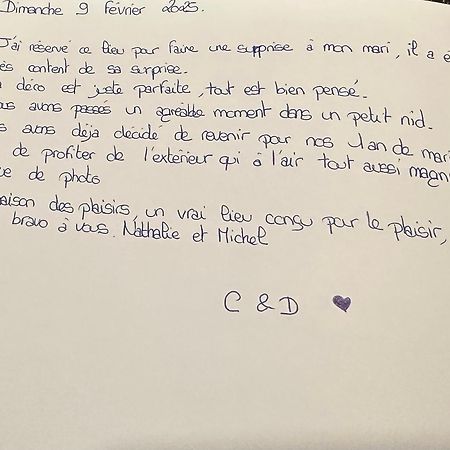 Dimanche 9 Février 2025.
J'ai réservé ce lieu pour faire une surprise à mon mari, il a é
és content de sa surprise.
déco est juste parfaite, tout est bien pensé.
us avons passés un agréable moment dans un petit nid.
s avons déja décidé de revenir pour nos 1an de mari
de profiter de l'extérieur qui a l'air tout aussi magn
ce de photo
aison des plaisirs, un vrai lieu conçu pour le plaisir,
bravo à vous. Nathalie et Michel
C & D ♥